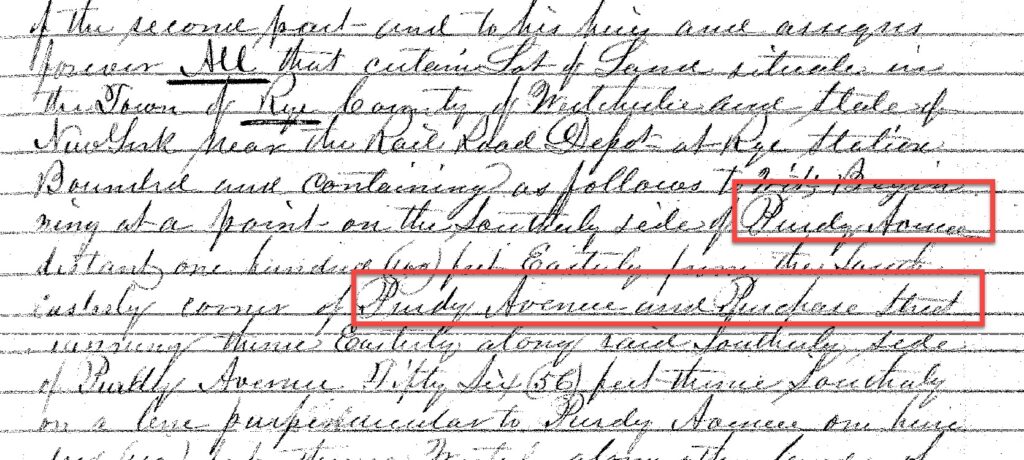 of the second part and to his heirs and assigns
forever All that certain Lot of Land situate in
the Town of Rye County of Westchester and State of
New York near the Rail Road Depot at Rye Station
Bounded and Containing as follows to wit; Begin
ning at a point on the Southerly side of Purdy Avenue
distant one hundred (100) feet Easterly from the South
easterly corner of Purdy Avenue and Purchase Street
running thence Easterly along said Southerly side
of Purdy Avenue Fifty Six (56) feet thence Southerly
on a line perpendicular to Purdy Avenue one hun
dred (100) feet thence Westerly along other lands of